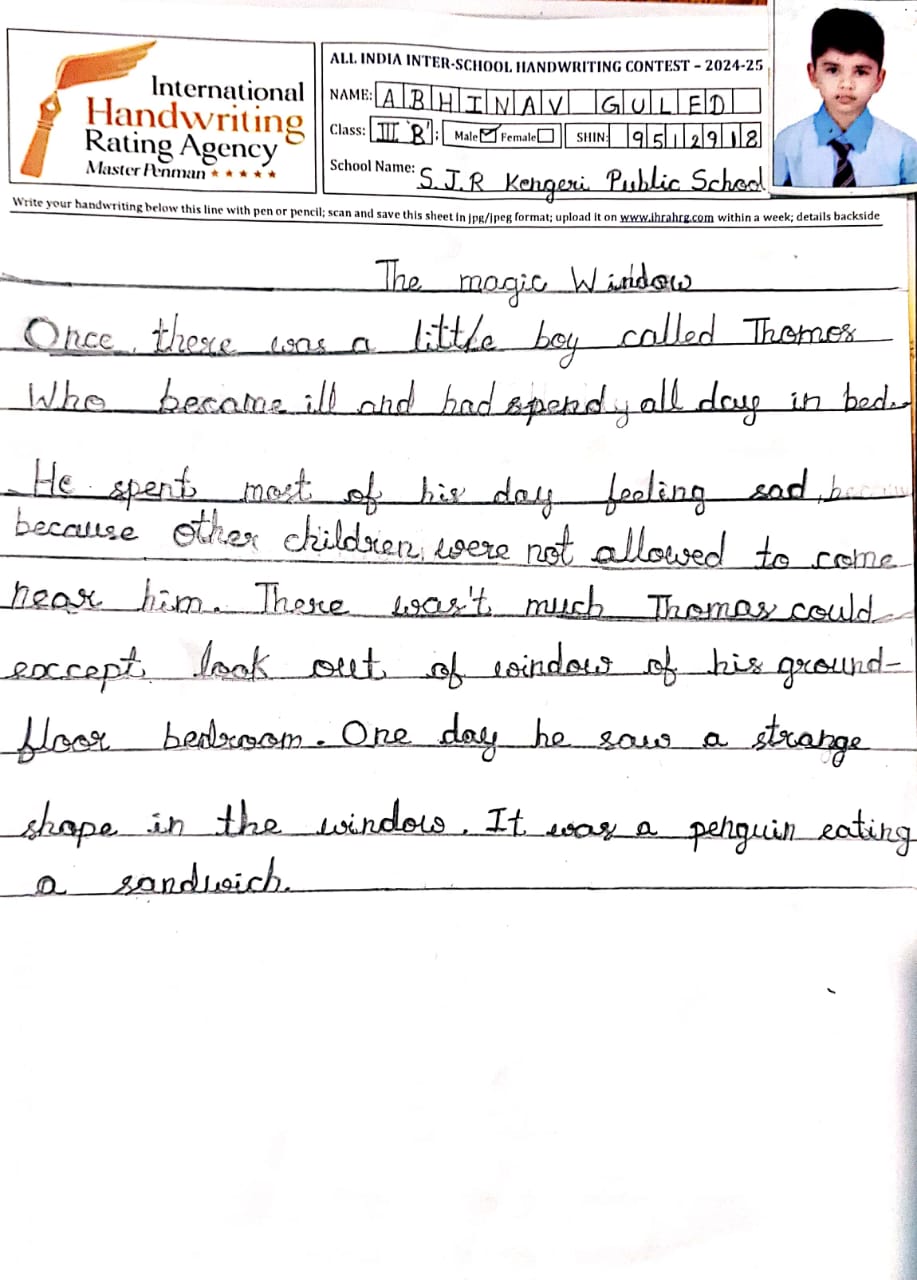 International
Handwriting
Rating Agency
Master Penman
ALL INDIA INTER-SCHOOL HANDWRITING CONTEST - 2024-25
NAME: ABHINAV GULED
Class: III 'B' Male ☑ Female ☐ SHIN: 9512918
School Name: S.J.R Kengeri Public School
Write your handwriting below this line with pen or pencil; scan and save this sheet in jpg/jpeg format; upload it on www.ihrahrg.com within a week; details backside
The magic Window
Once, there was a little boy called Thomas
Who became ill and had spend y all day in bed.
He spent most of his day feeling sad,
because other children were not allowed to come
near him. There was't much Thomas could
except look out of window of his ground-
floor bedroom. One day he saw a strange
shape in the window. It was a penguin eating
a sandwich.